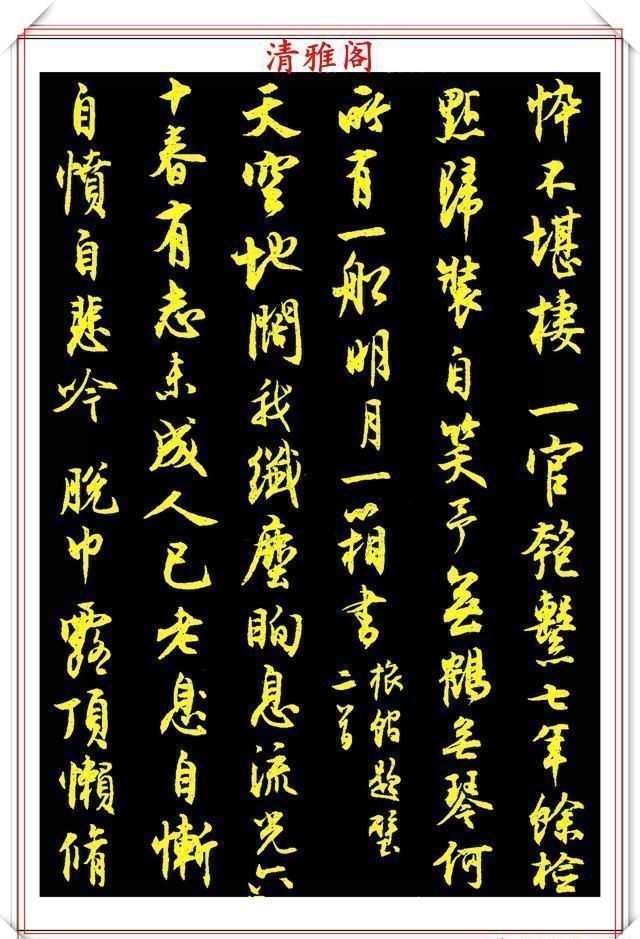 清雅阁
忰不堪棲一官匏繫七年餘檢
點歸裝自笑予無鶴無琴何
所有一船明月一箱書
旅館題壁
二首
天空地闊我纖塵眴息流光六
十春有志未成人已老息自慚
自憤自悲吟脫巾露頂懶脩